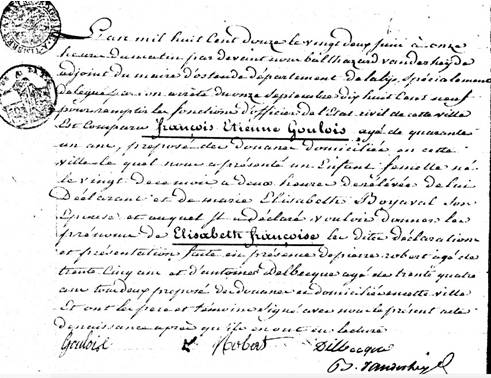 L'an mil huit Cent douze le vingt deux juin à onze
heure du matin par devant nous balthazard vanderheyde
adjoint du maire d'ostende département de la lys, spécialement
délégué par son arrêté du onze septembre dix huit Cent neuf
pour remplir les fonctions d'officier de l'Etat civil de cette ville
Est Comparu françois Etienne Goulois agé de quarante
un ans, préposé de douane domicilié en cette
ville le quel nous a présenté un Enfant femelle né
le vingt de ce mois a deux heure de relévée de lui
Déclarant et de marie Elisabeth Boyaval son
Epouse et auquel il a déclaré vouloir donner les
prénoms de Elisabeth françoise les dites déclaration
et présentation faite en présence de pierre robert agé de
trente Cinq ans et d'antoine delbecque agé de trente quatre
ans tous deux préposé de douane et domicilié en cette ville
Et ont les pere et témoins signé avec nous le présent acte
de naissance après qu'ils en ont eu lecture
Goulois Robert Dilbecque
B. Vanderheyde